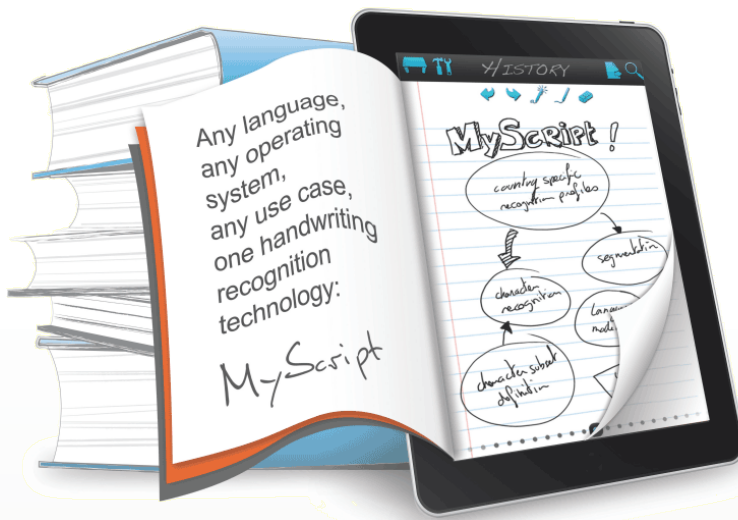 Any language,
any operating
system,
any use case,
one handwriting
recognition
technology:
MyScript
HISTORY
MyScript !
country specific
recognition profiles
segmentation
character
recognition
character subset
definition